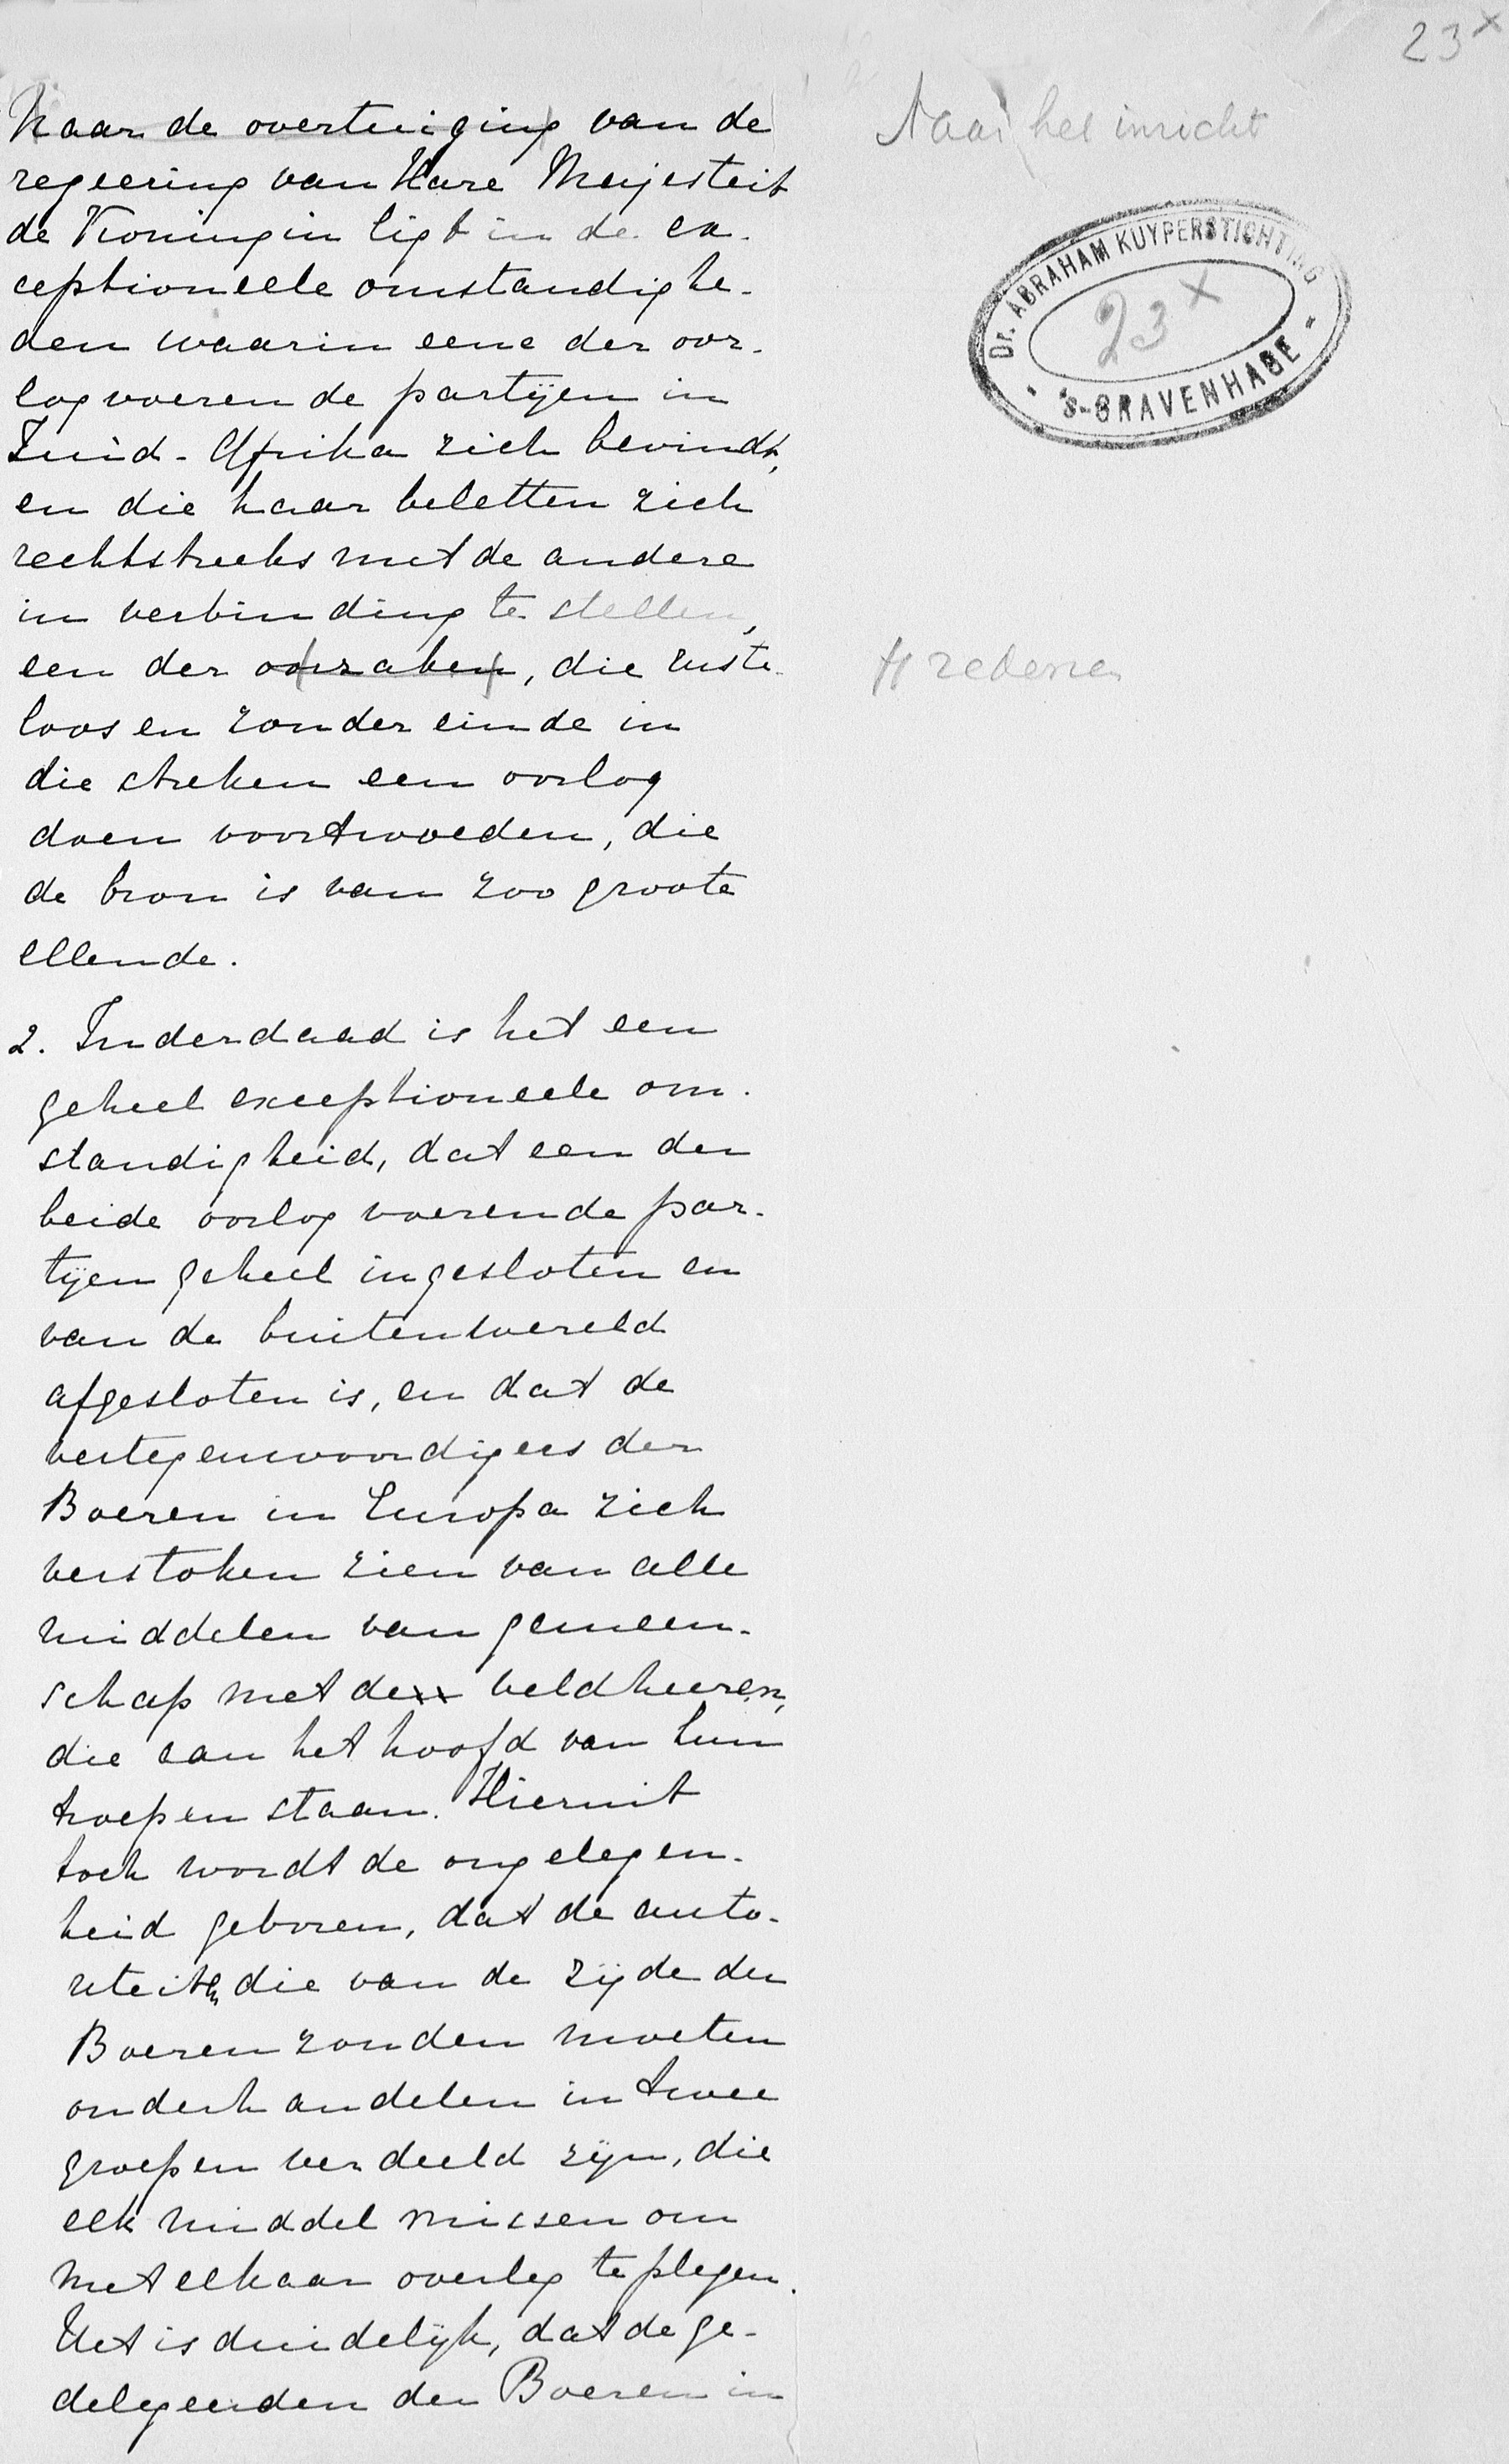 23 x
Naar de overtuiging van de
regeering van Hare Majesteit
de Koningin ligt in de ex-
ceptioneele omstandighe-
den waarin eene der oor-
logvoerende partijen in
Zuid-Afrika zich bevindt,
en die haar beletten zich
rechtstreeks met de andere
in verbinding te stellen,
een der oorzaken, die ruste-
loos en zonder einde in
die streken een oorlog
doen voortwoeden, die
de bron is van zoo groote
ellende.
2. Inderdaad is het een
geheel exceptioneele om-
standigheid, dat een der
beide oorlogvoerende par-
tijen geheel ingesloten en
van de buitenwereld
afgesloten is, en dat de
vertegenwoordigers der
Boeren in Europa zich
verstoken zien van alle
middelen van gemeen-
schap met de veldheeren,
die aan het hoofd van hun
troepen staan. Hieruit
toch wordt de ongelegen-
heid geboren, dat de auto-
riteiten die van de zijde der
Boeren zouden moeten
onderhandelen in twee
groepen verdeeld zijn, die
elk middel missen om
met elkaar overleg te plegen.
Het is duidelijk, dat de ge-
delegeerden der Boeren in
Naar het inzicht
Dr. ABRAHAM KUYPERSTICHTING
23 x
'S-GRAVENHAGE
H redenen